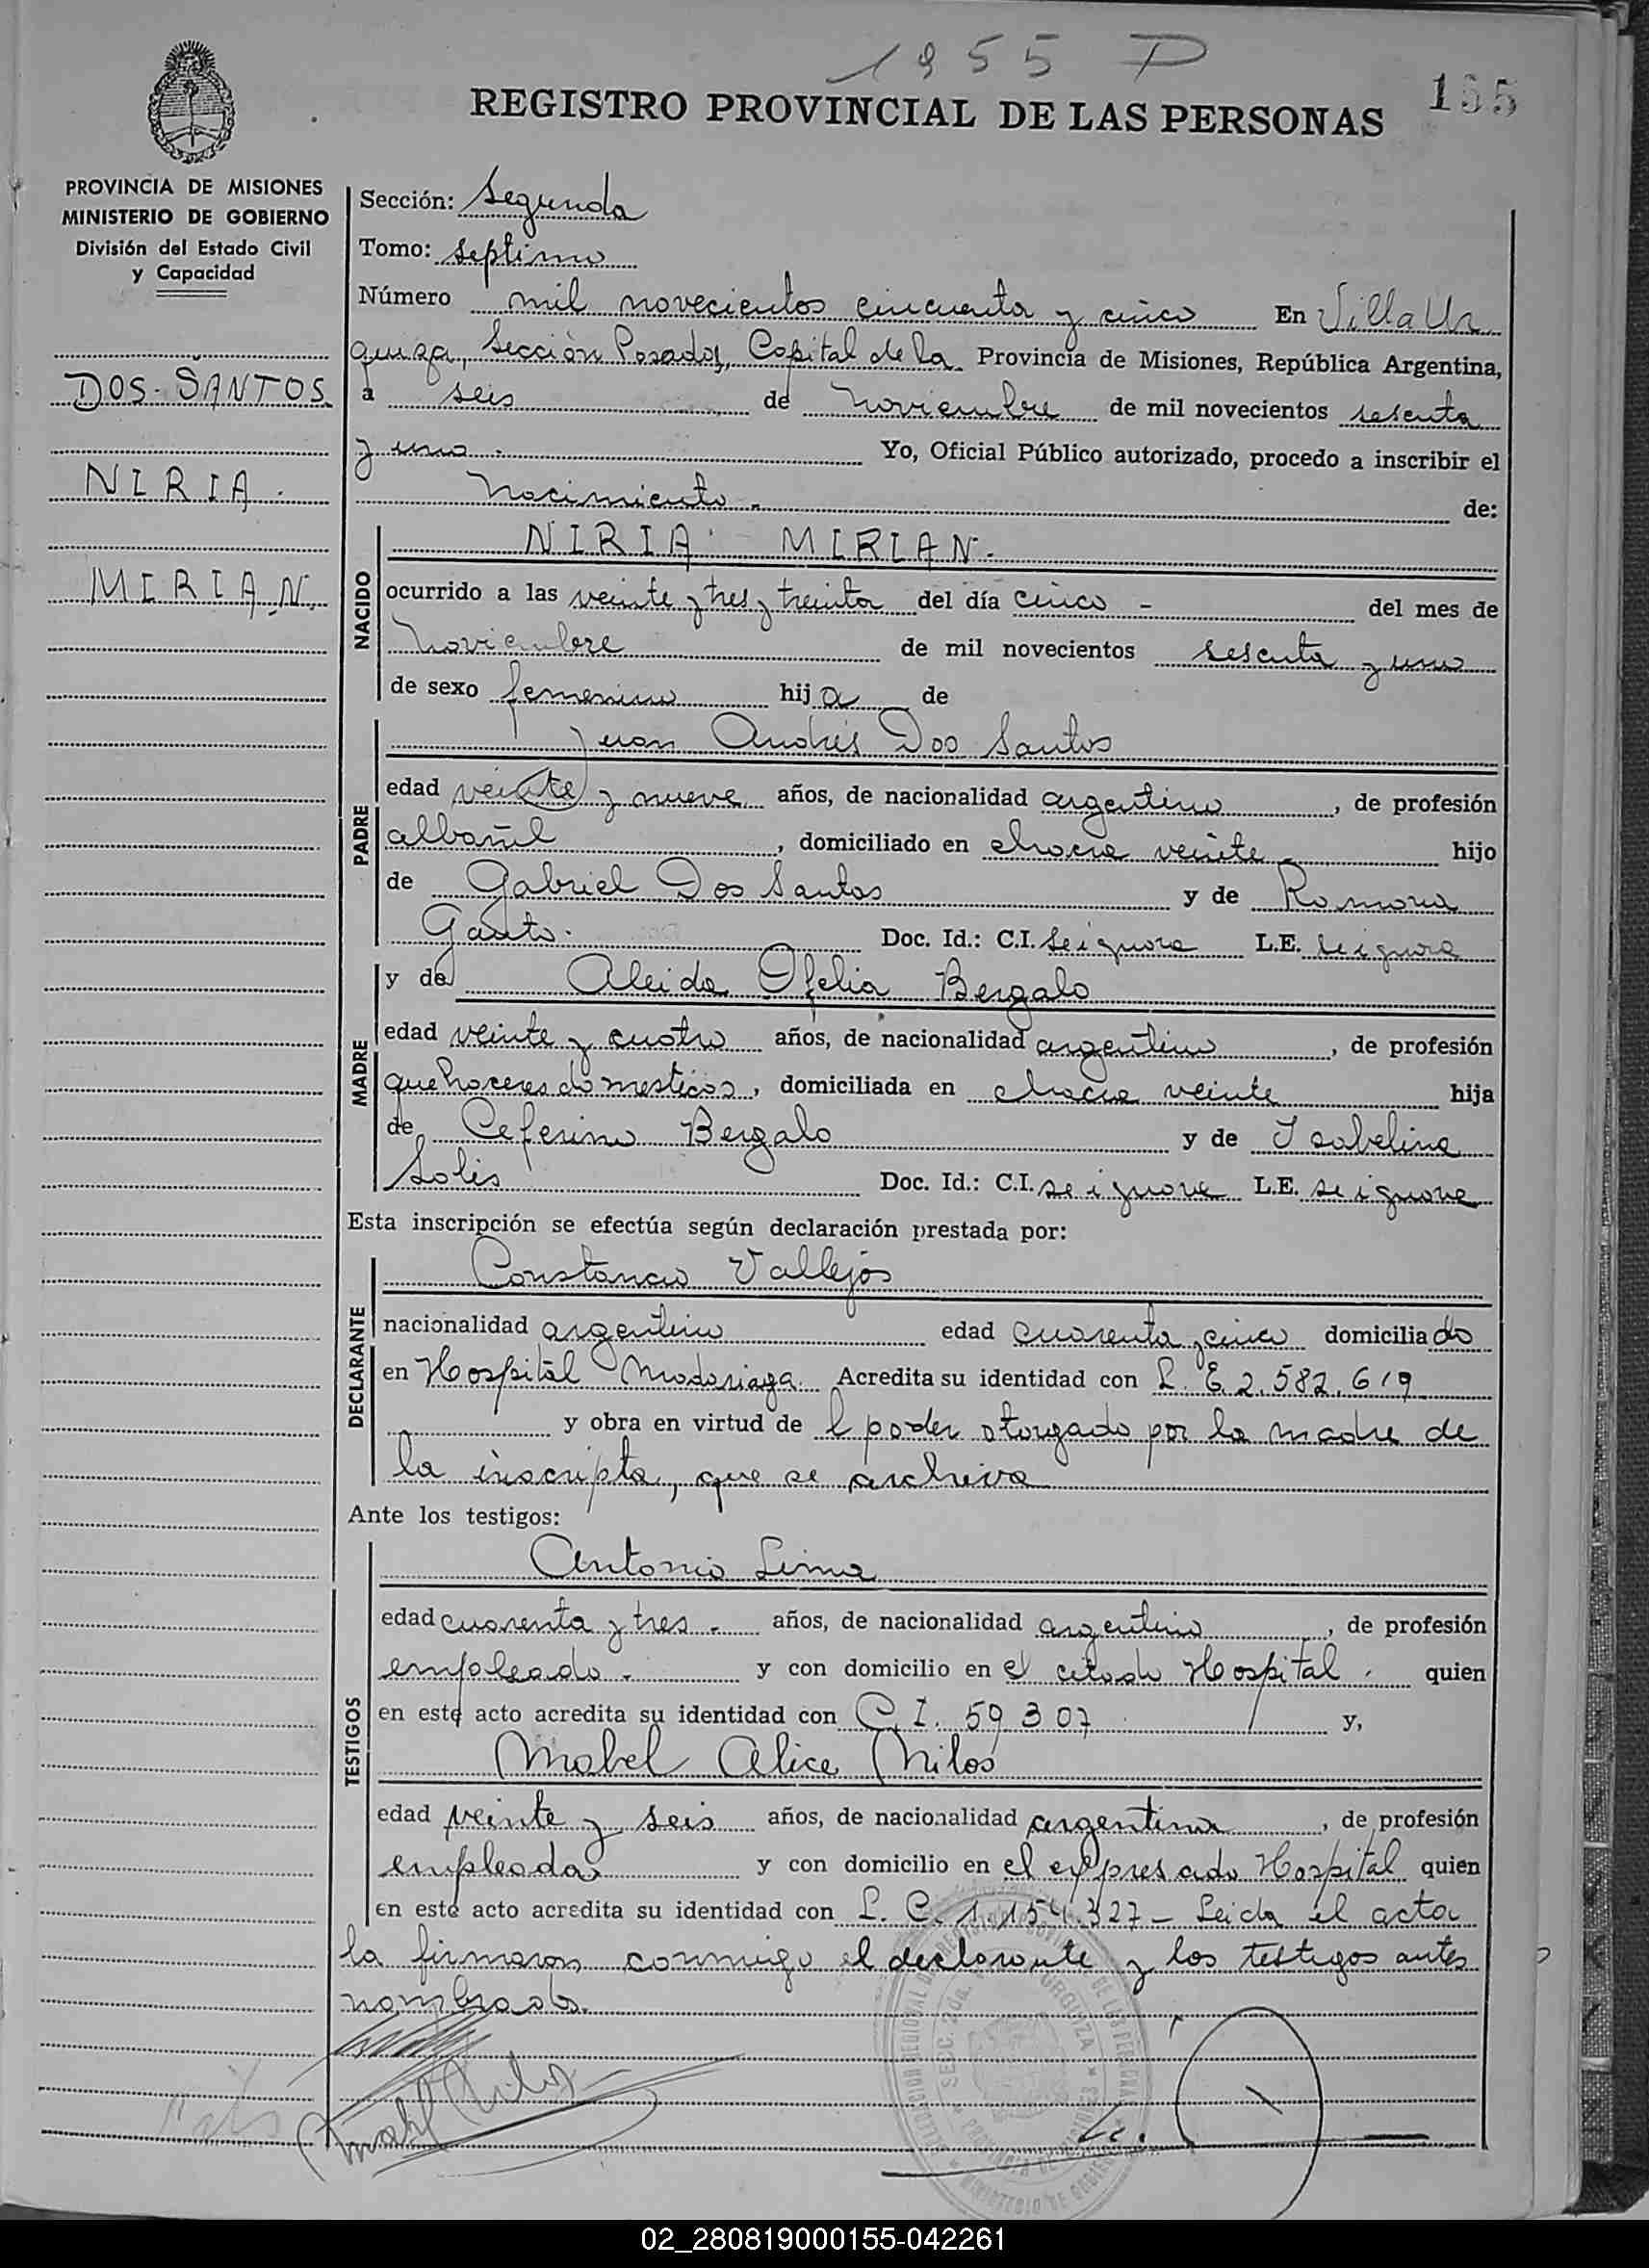 1955 P
REGISTRO PROVINCIAL DE LAS PERSONAS
155
PROVINCIA DE MISIONES
MINISTERIO DE GOBIERNO
División del Estado Civil
y Capacidad
DOS SANTOS
NIRIA.
MIRIAN.
Sección: Segunda
Tomo: septimo
Número mil novecientos cincuenta y cinco En Villa Ur
quiza, Sección Posadas, Capital de la Provincia de Misiones, República Argentina,
a seis de noviembre de mil novecientos sesenta
y uno. Yo, Oficial Público autorizado, procedo a inscribir el
nacimiento.- de:
NACIDO
NIRIA MIRIAN.
ocurrido a las veinte y tres y treinta del día cinco - del mes de
noviembre de mil novecientos sesenta y uno
de sexo femenino hija de
PADRE
Juan Andrés Dos Santos
edad veinte y nueve años, de nacionalidad argentino, de profesión
albañil, domiciliado en chacra veinte - hijo
de Gabriel Dos Santos y de Ramona
Gauto. Doc. Id.: C.I. se ignora L.E. se ignora
MADRE
y de Aleida Ofelia Bergalo
edad veinte y cuatro años, de nacionalidad argentino, de profesión
quehaceres domesticos, domiciliada en chacra veinte hija
de Ceferino Bergalo y de Isabelina
Solis Doc. Id.: C.I. se ignora L.E. se ignora
Esta inscripción se efectúa según declaración prestada por:
DECLARANTE
Constancio Vallejos
nacionalidad argentino edad cuarenta y cinco domiciliado
en Hospital Madariaga. Acredita su identidad con L. E. 2.582.619
y obra en virtud de l poder otorgado por la madre de
la inscripta, que se archiva
Ante los testigos:
TESTIGOS
Antonio Lima
edad cuarenta y tres - años, de nacionalidad argentino, de profesión
empleado - y con domicilio en el citado Hospital. quien
en este acto acredita su identidad con C. I. 59307 y,
Mabel Alice Milos
edad veinte y seis años, de nacionalidad argentina, de profesión
empleada y con domicilio en el expresado Hospital quien
en este acto acredita su identidad con L. C. 1.154.327 - Leida el acta
la firmaron conmigo el declarante y los testigos antes
nombrados.
SECC. 2da.
URQUIZA
02_280819000155-042261